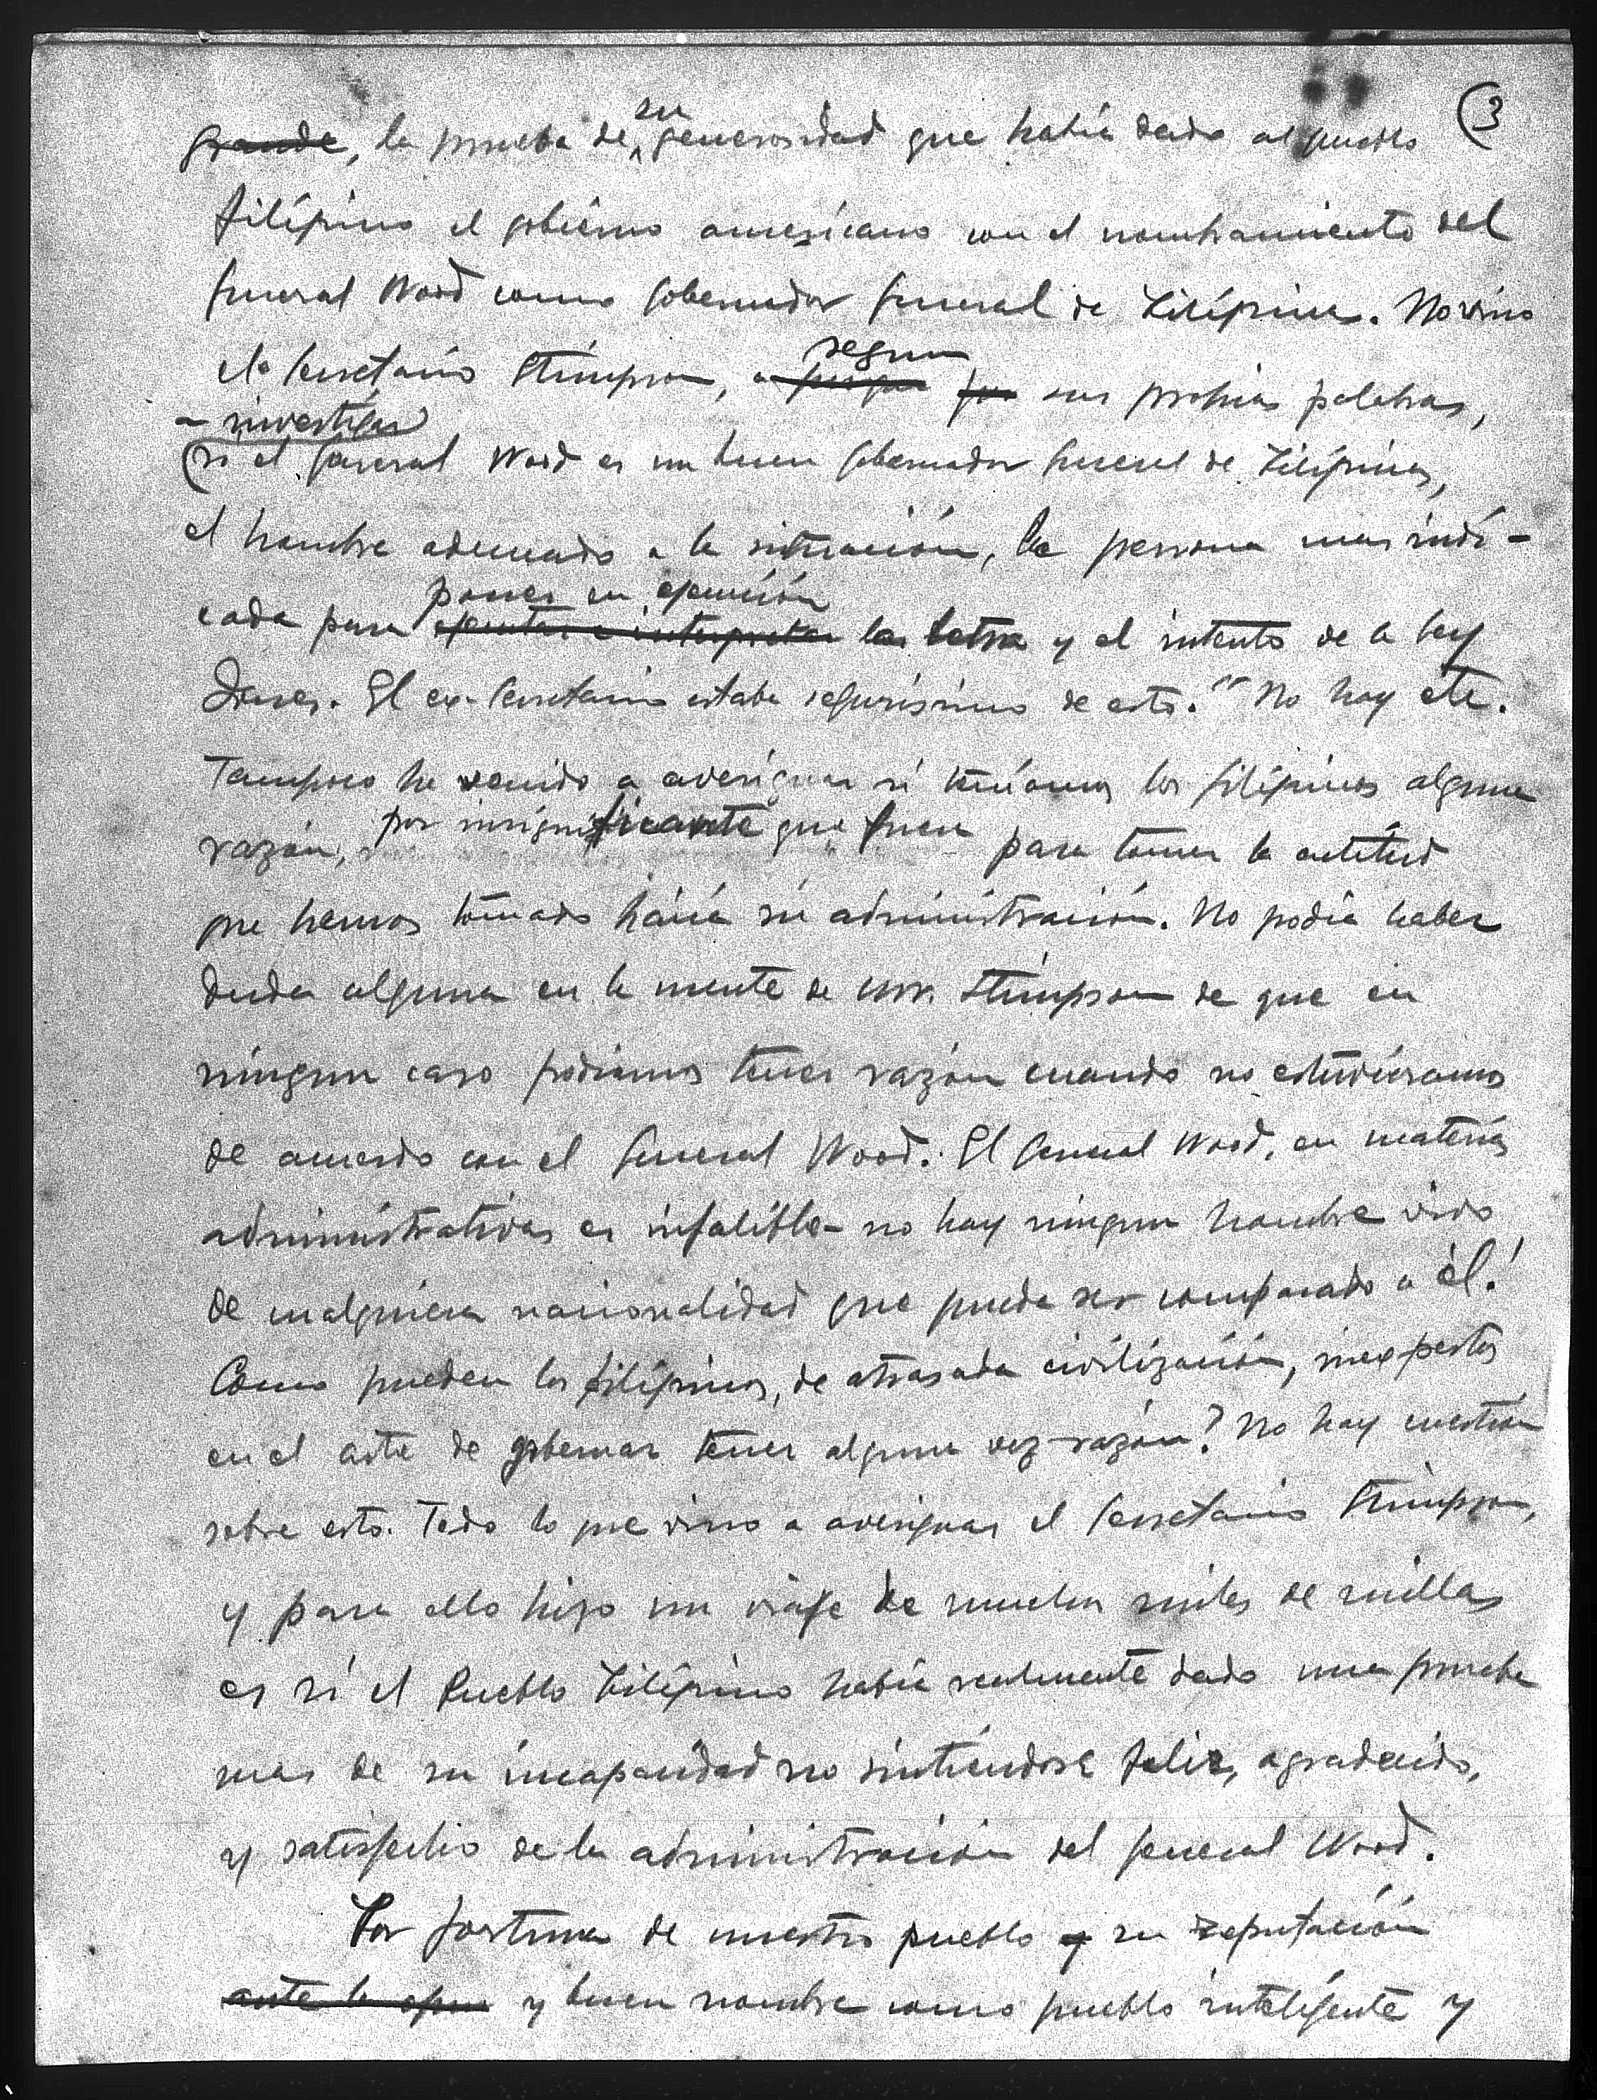 3
grande, la prueba de su generosidad que había dado al pueblo
filipino el gobierno americano con el nombramiento del
General Wood como Gobernador General de Filipinas. No vino
el Secretario Stimpson, segun sus propias palabras,
a investigar
si el General Wood es un buen Gobernador General de Filipinas,
el hombre adecuado a la situación, la persona mas indi-
cada para poner en ejecución
ejecutar e interpretar la letra y el intento de la ley
Jones. El ex-Secretario estaba segurisimo de esto. No hay etc.
Tampoco ha venido a averiguar si teníamos los filipinos alguna
razón, por insignificante que fuera para tomar la actitud
que hemos tomado hácia su administración. No podia haber
duda alguna en la mente de Mr. Stimpson de que en
ningun caso podiamos tener razón cuando no estuvieramos
de acuerdo con el General Wood. El General Wood, en materias
administrativas es infalible - no hay ningun hombre vivo
de cualquiera nacionalidad que pueda ser comparado a él!
Como pueden los filipinos, de atrasada civilización, inexpertos
en el arte de gobernar tener alguna vez razón? No hay cuestión
sobre esto. Todo lo que vino a averiguar el Secretario Stimpson,
y para ello hizo un viaje de muchas miles de millas
es si el Pueblo Filipino había realmente dado una prueba
mas de su incapacidad no sintiéndose feliz, agradecido,
y satisfecho de la administración del General Wood.
Por fortuna de nuestro pueblo y su reputación
ante la opin y buen nombre como pueblo inteligente y